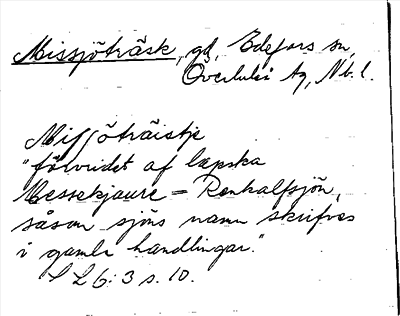 Missjöträsk, gd, Edefors sn,
Överluleå tg, Nb. l.
Missjöträistje
"förvridet af lapska
Messekjaure = Renkalfsjön,
såsom sjöns namn skrifves
i gamla handlingar."
S L 6:3 s. 10.